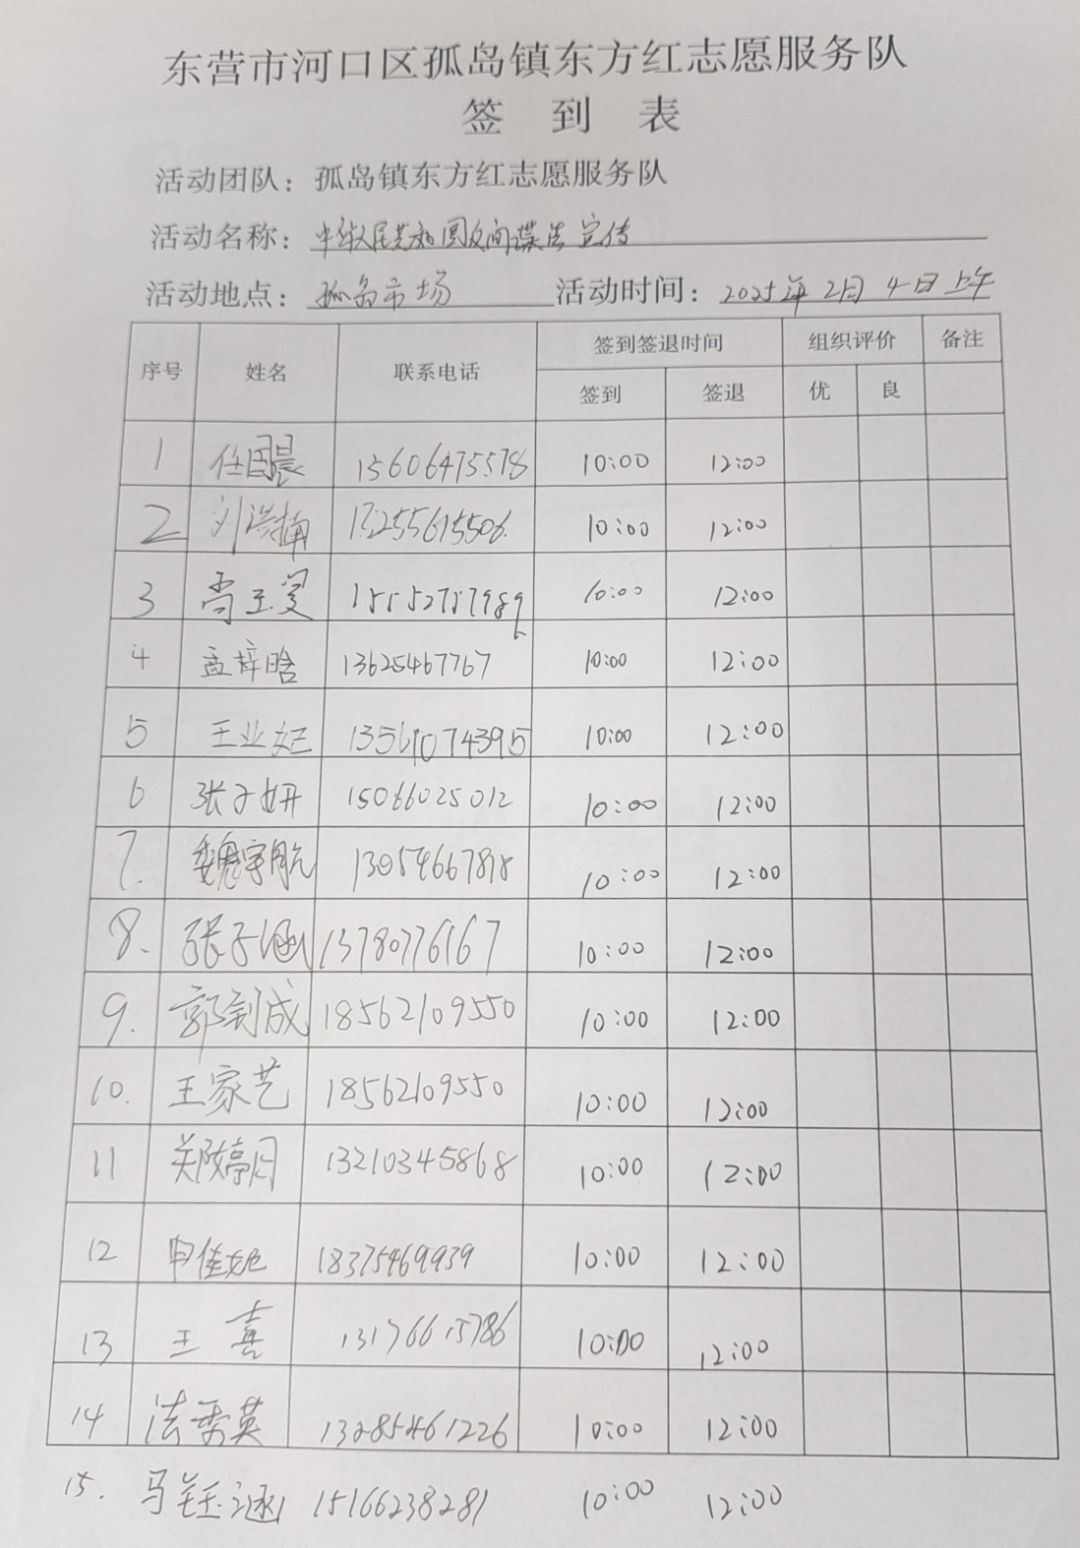 东营市河口区孤岛镇东方红志愿服务队
签 到 表
活动团队：孤岛镇东方红志愿服务队
活动名称：中华人民共和国反间谍法宣传
活动地点：孤岛市场 活动时间：2025年2月4日上午
序号 姓名 联系电话 签到签退时间 组织评价 备注
签到 签退 优 良
1 任国晨 15606475578 10:00 12:00
2 刘 13255615506 10:00 12:00
3 10:00 12:00
4 孟梓晗 13625467767 10:00 12:00
5 王业妃 10:00 12:00
6 张子妍 15066025012 10:00 12:00
7. 魏宇航 13054667898 10:00 12:00
8. 张子涵 13780776167 10:00 12:00
9. 郭到成 18562109550 10:00 12:00
10. 王家艺 18562109550 10:00 12:00
11 13210345868 10:00 12:00
12 申佳妮 18375469939 10:00 12:00
13 王喜 13176615786 10:00 12:00
14 法秀英 13285461226 10:00 12:00
15. 马钰涵 15166238281 10:00 12:00